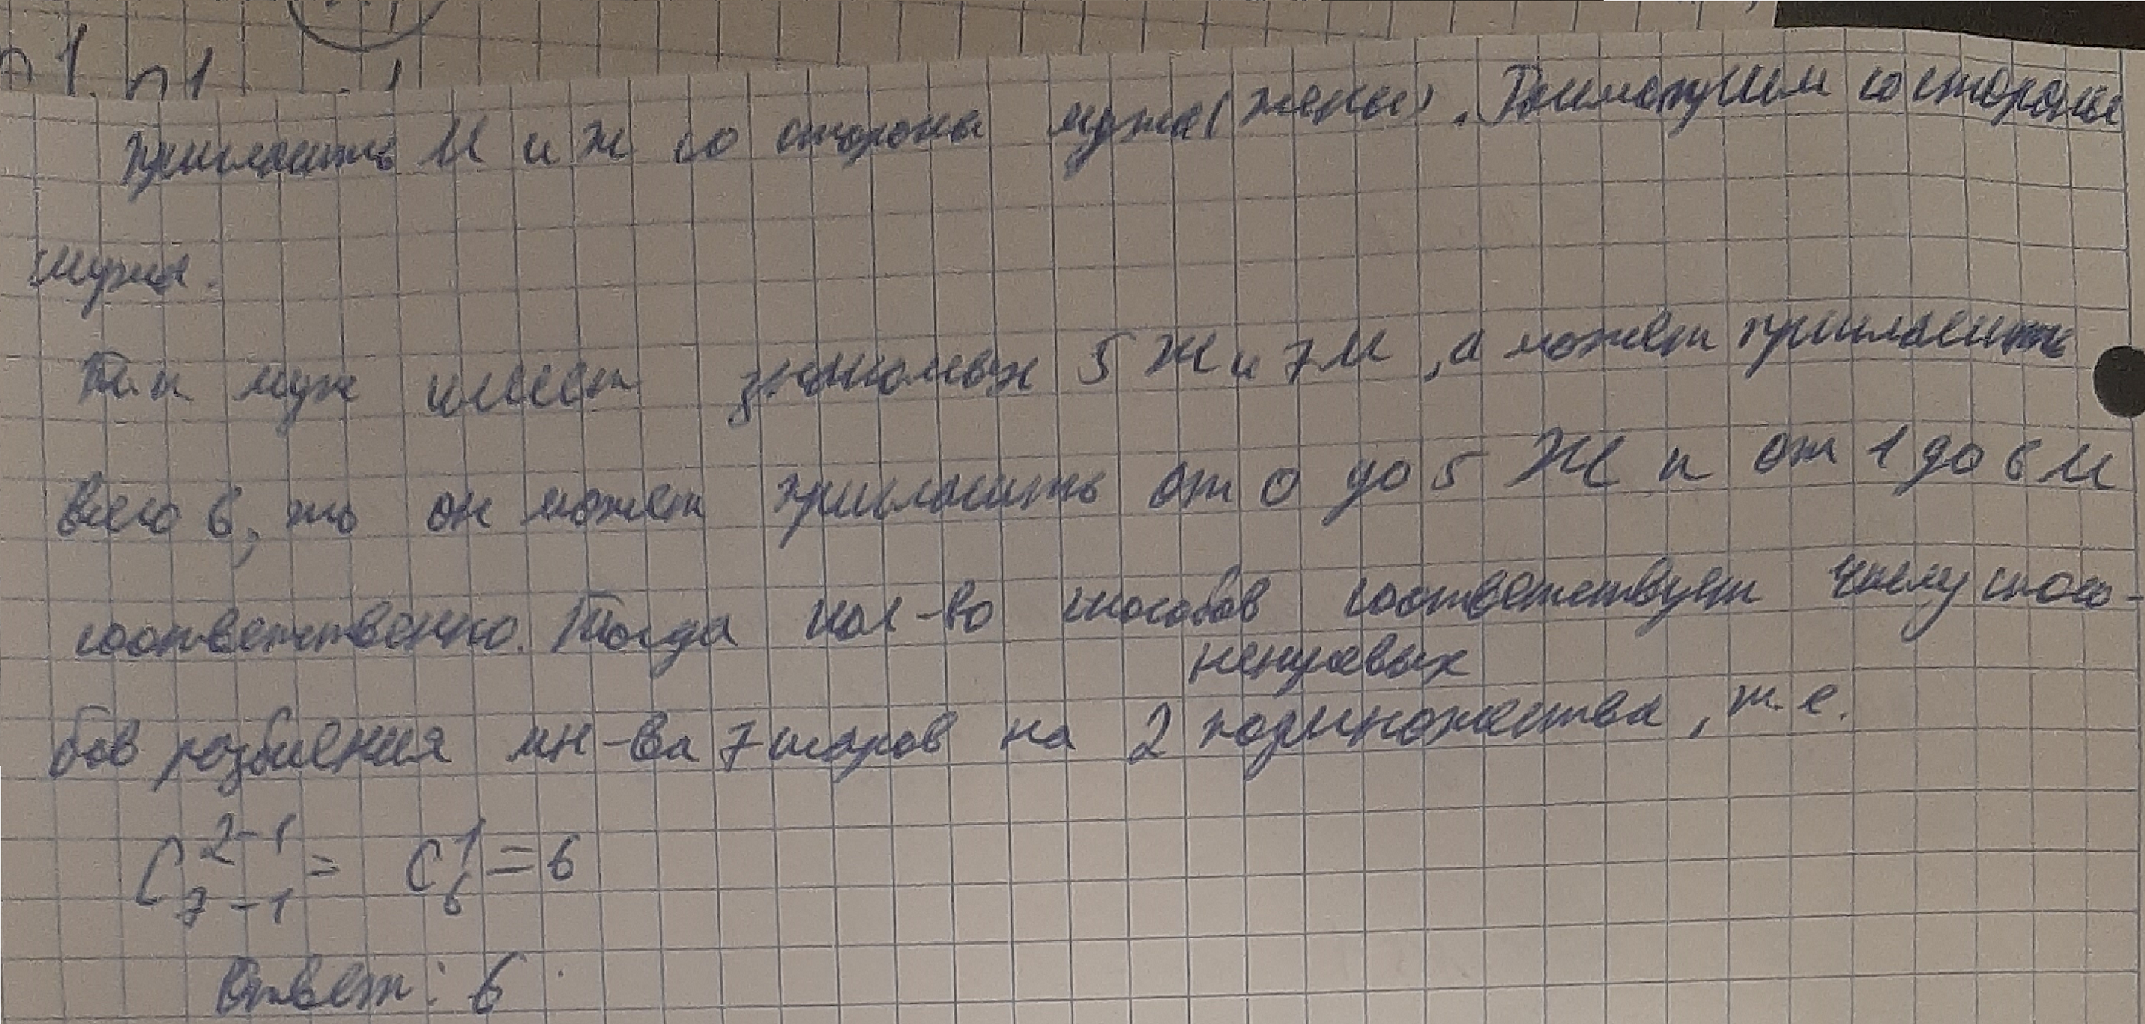 n1. n1
пригласить М и Ж со стороны мужа (жены). Посмотрим со стороны
мужа.
Т.к муж имеет знакомых 5 Ж и 7 М, а может пригласить
всего 6, то он может пригласить от 0 до 5 Ж и от 1 до 6 М
соответственно. Тогда кол-во способов соответствует числу спосо-
ненулевых
бов разбиения мн-ва 7 шаров на 2 подмножества, т.е.
C_{7-1}^{2-1} = C_6^1 = 6
Ответ: 6